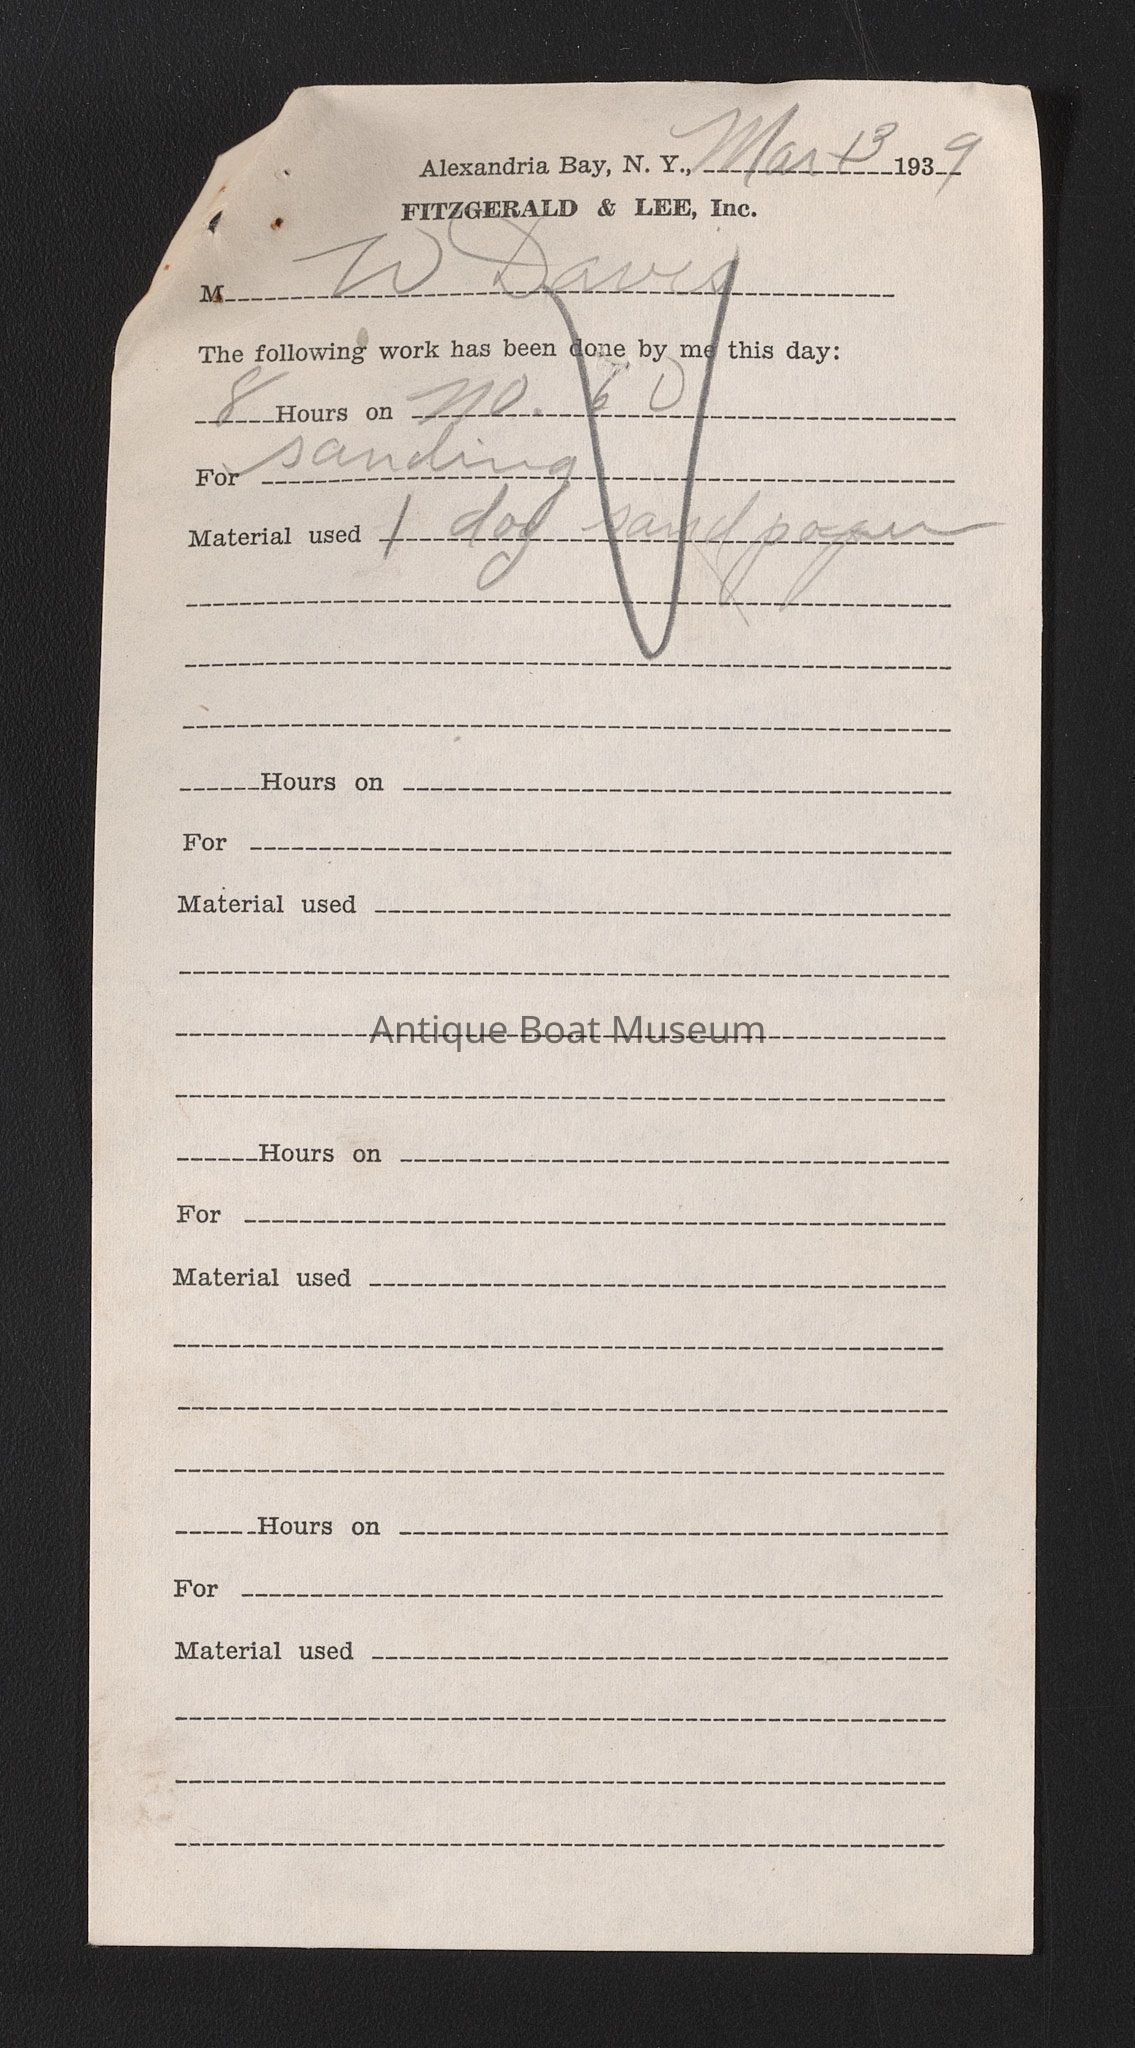 Alexandria Bay, N. Y., Mar 13 1939
FITZGERALD & LEE, Inc.
M W Davis
The following work has been done by me this day:
8 Hours on no. 60
For sanding
Material used 1 dog sandpaper
Hours on
For
Material used
Antique Boat Museum
Hours on
For
Material used
Hours on
For
Material used